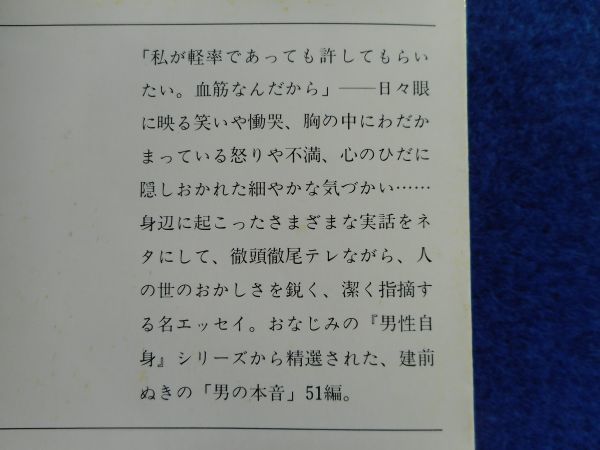 「私が軽率であっても許してもらい
たい。血筋なんだから」――日々眼
に映る笑いや慟哭、胸の中にわだか
まっている怒りや不満、心のひだに
隠しおかれた細やかな気づかい……
身辺に起こったさまざまな実話をネ
タにして、徹頭徹尾テレながら、人
の世のおかしさを鋭く、潔く指摘す
る名エッセイ。おなじみの『男性自
身』シリーズから精選された、建前
ぬきの「男の本音」51編。